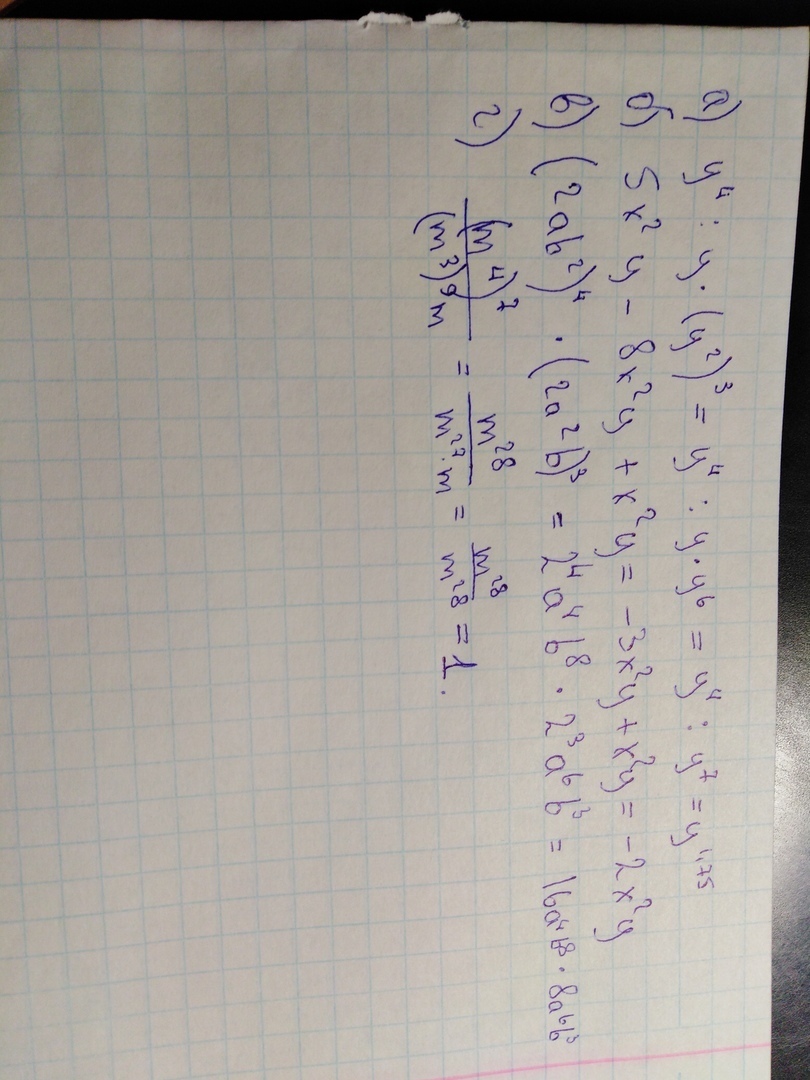 а) y⁴ : y · (y²)³ = y⁴ : y · y⁶ = y⁴ : y⁷ = y¹’⁷⁵
б) 5x²y - 8x²y + x²y = -3x²y + x²y = -2x²y
в) (2ab²)⁴ · (2a²b)³ = 2⁴a⁴b⁸ · 2³a⁶b³ = 16a⁴b⁸ · 8a⁶b³
г) (m⁴)⁷ / (m³)⁹m = m²⁸ / m²⁷·m = m²⁸ / m²⁸ = 1.